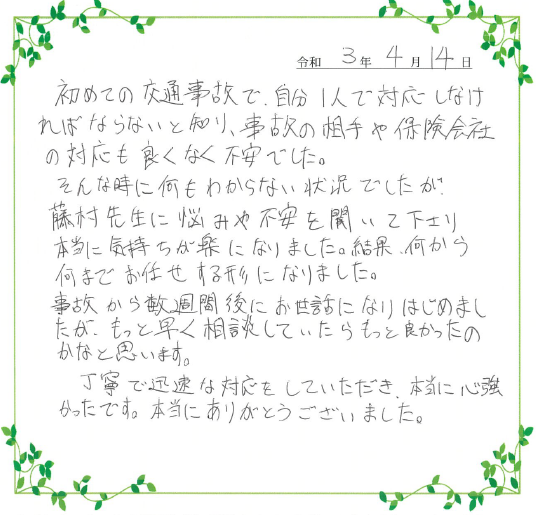 令和 3年 4月 14日
初めての交通事故で、自分1人で対応しなけ
ればならないと知り、事故の相手や保険会社
の対応も良くなく不安でした。
そんな時に何もわからない状況でしたが、
藤村先生に悩みや不安を聞いて下さり
本当に気持ちが楽になりました。結果、何から
何までお任せする形になりました。
事故から数週間後にお世話になりはじめまし
たが、もっと早く相談していたらもっと良かったの
かなと思います。
丁寧で迅速な対応をしていただき、本当に心強
かったです。本当にありがとうございました。